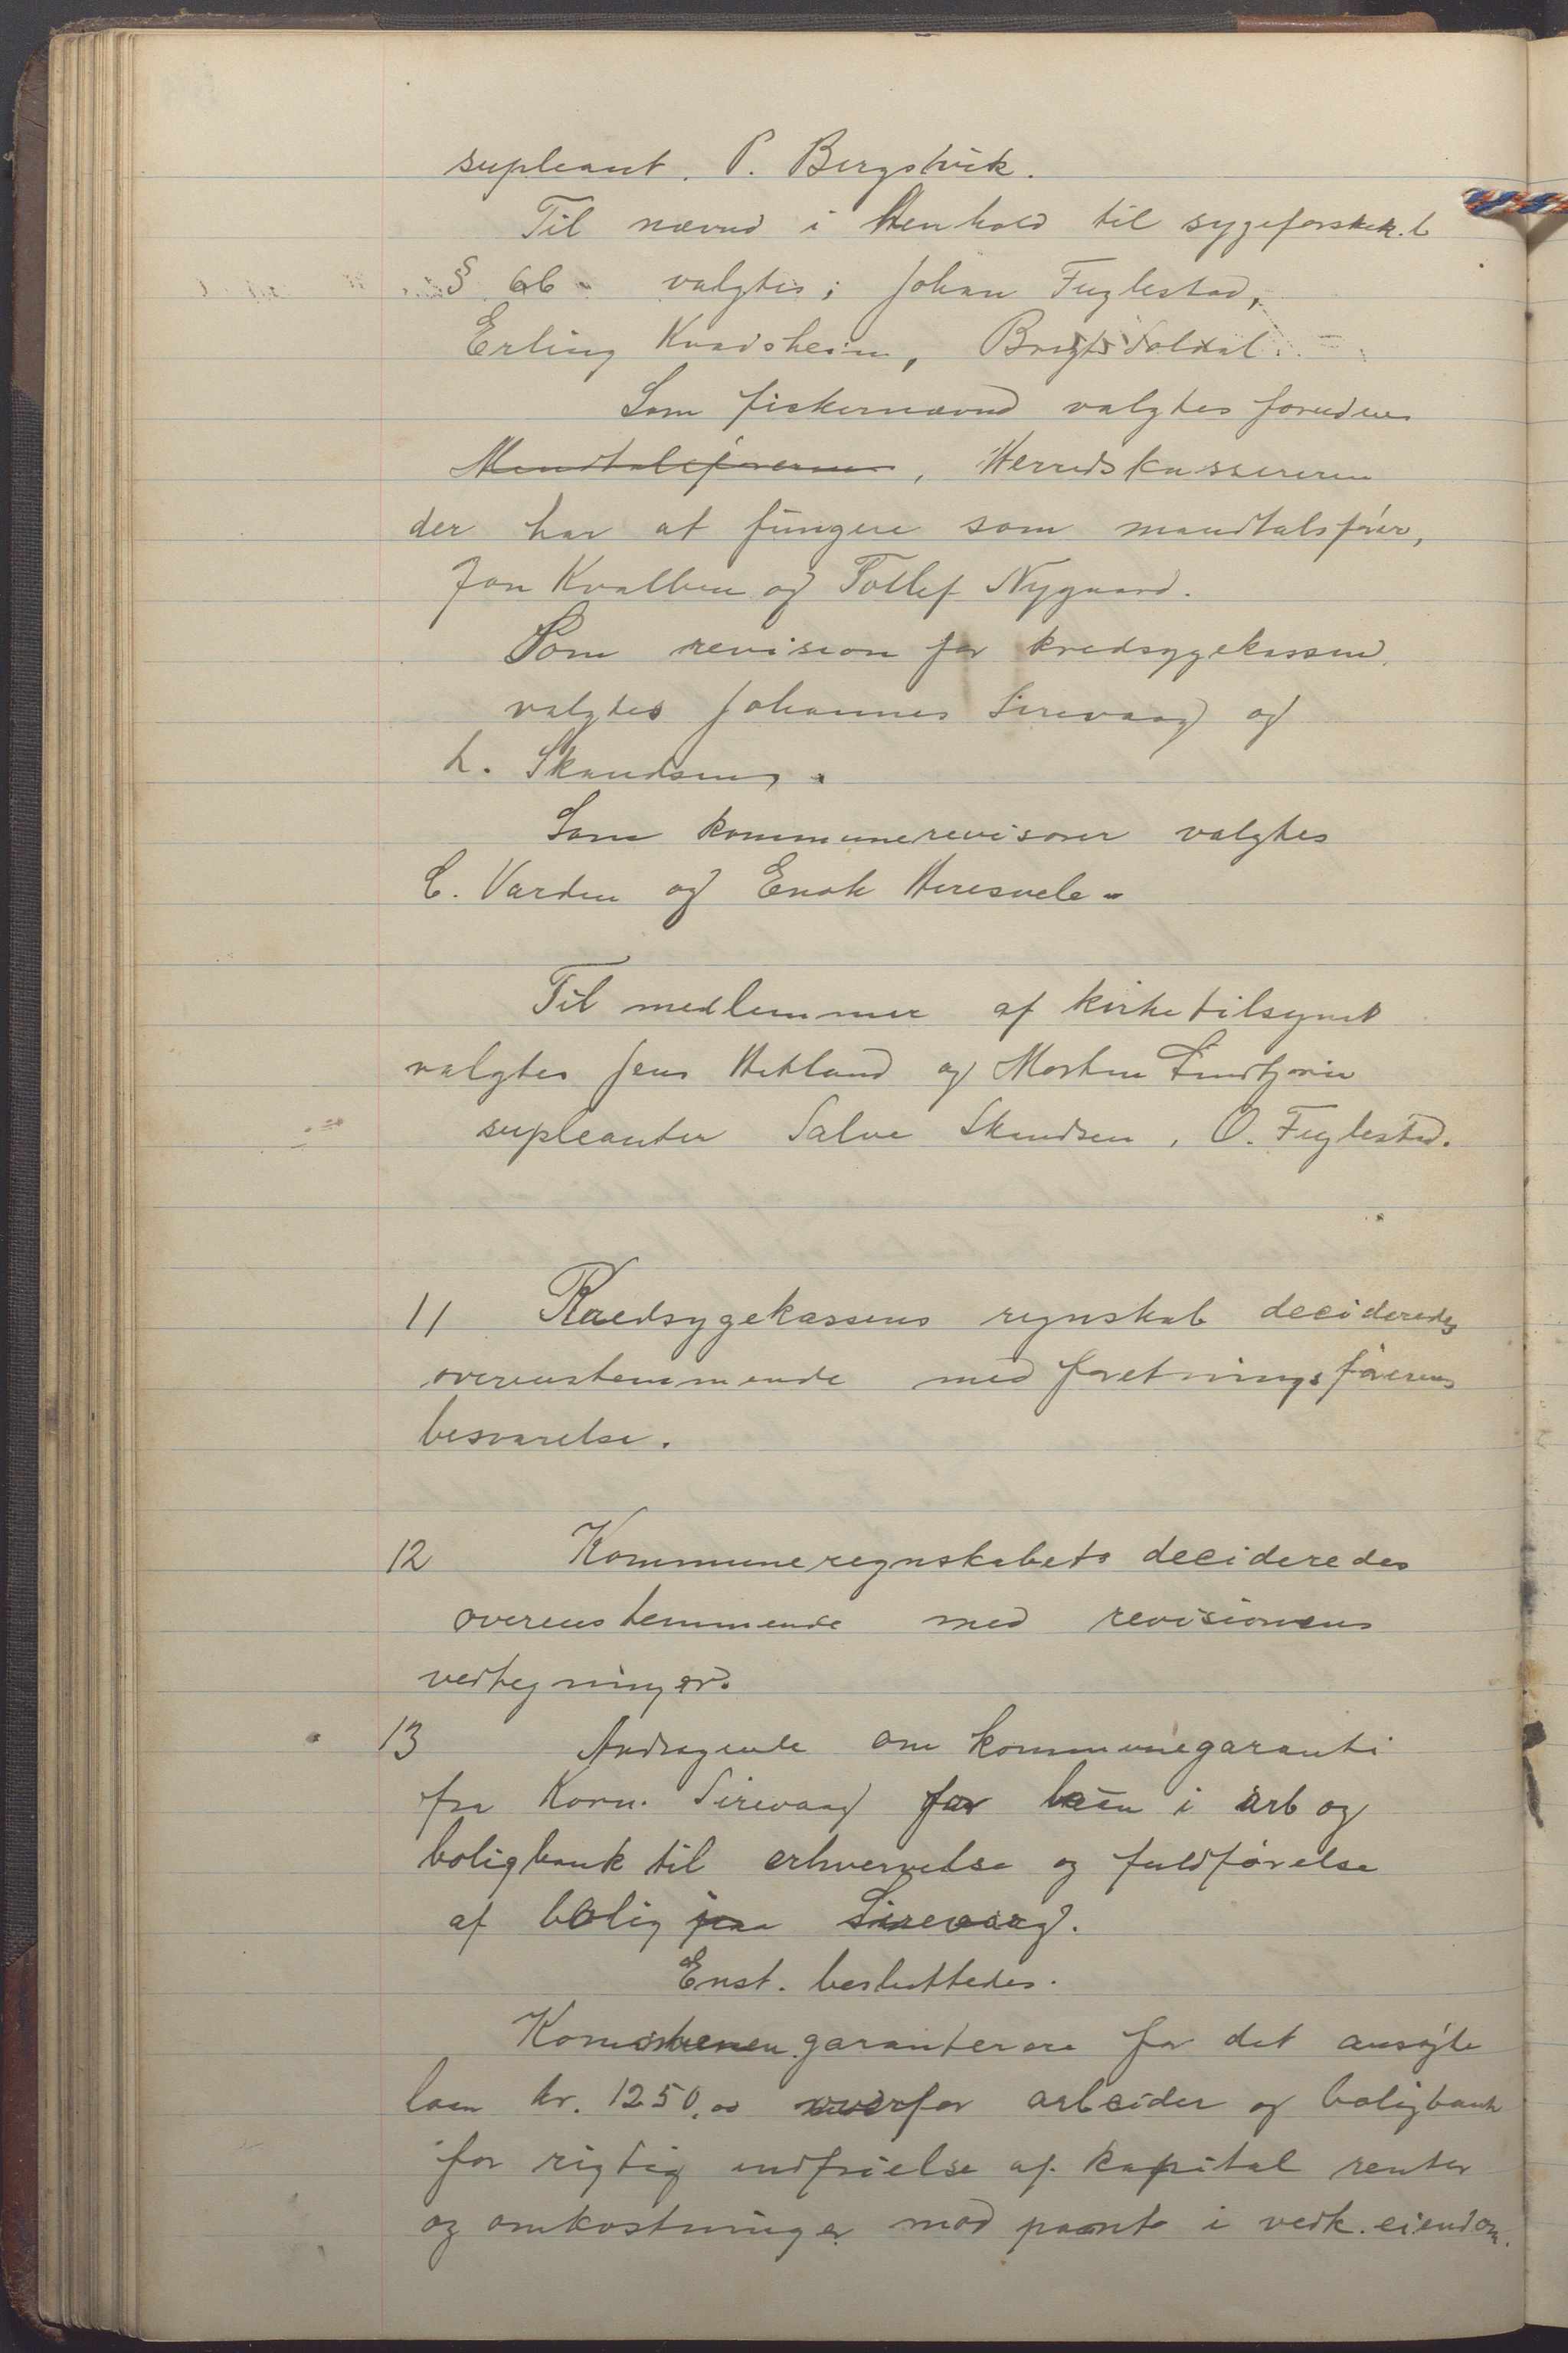 supleant. P. Bergstvik.
Til nævnd i Henhold til sygeforsikr.l
§ 66 valgtes; Johan Fuglestad,
Erling Kvadsheim, Bragt Soldal.
Som fiskernævnd valgtes foruden
Mandtalsføreren, Herredskassereren
der har at fungere som mandtalsfører,
Jon Kvalbein og Tollef Nygaard.
Som revision for kredsygekassen
valgtes Johannes Sirevaag og
L. Skandsen.
Som kommunerevisorer valgtes
C. Varden og Enok Heresvele
Til medlemmer af kirketilsynet
valgtes Jens Hetland og Morten
supleanter Salve Skandsen, O. Fuglestad.
11 Kredsygekassens regnskab decideredes
overenstemmende med foretningsførerens
besvarelse.
12 Kommuneregnskabets decideredes
overenstemmende med revisionens
vedtegninger.
13 Andragende om kommunegaranti
fra Korn. Sirevaag for laan i arb og
boligbank til erhvervelse og fuldførelse
af bolig paa Sirevaag.
Enst. besluttedes.
Komunen garanterere for det ansøgte
laan kr. 1250,00 overfor arbeider og boligbank
for rigtig indfrielse af kapital renter
og omkostninger mod pant i vedk. eiendom.